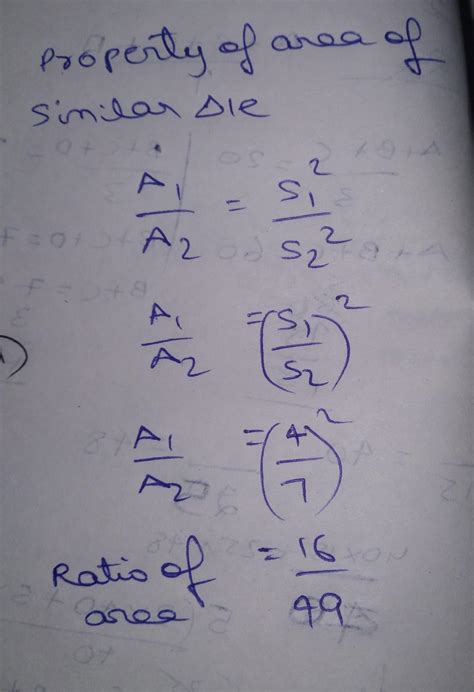 Property of area of
similar Δle
A₁/A₂ = S₁²/S₂²
A₁/A₂ = (S₁/S₂)²
A₁/A₂ = (4/7)²
Ratio of area = 16/49